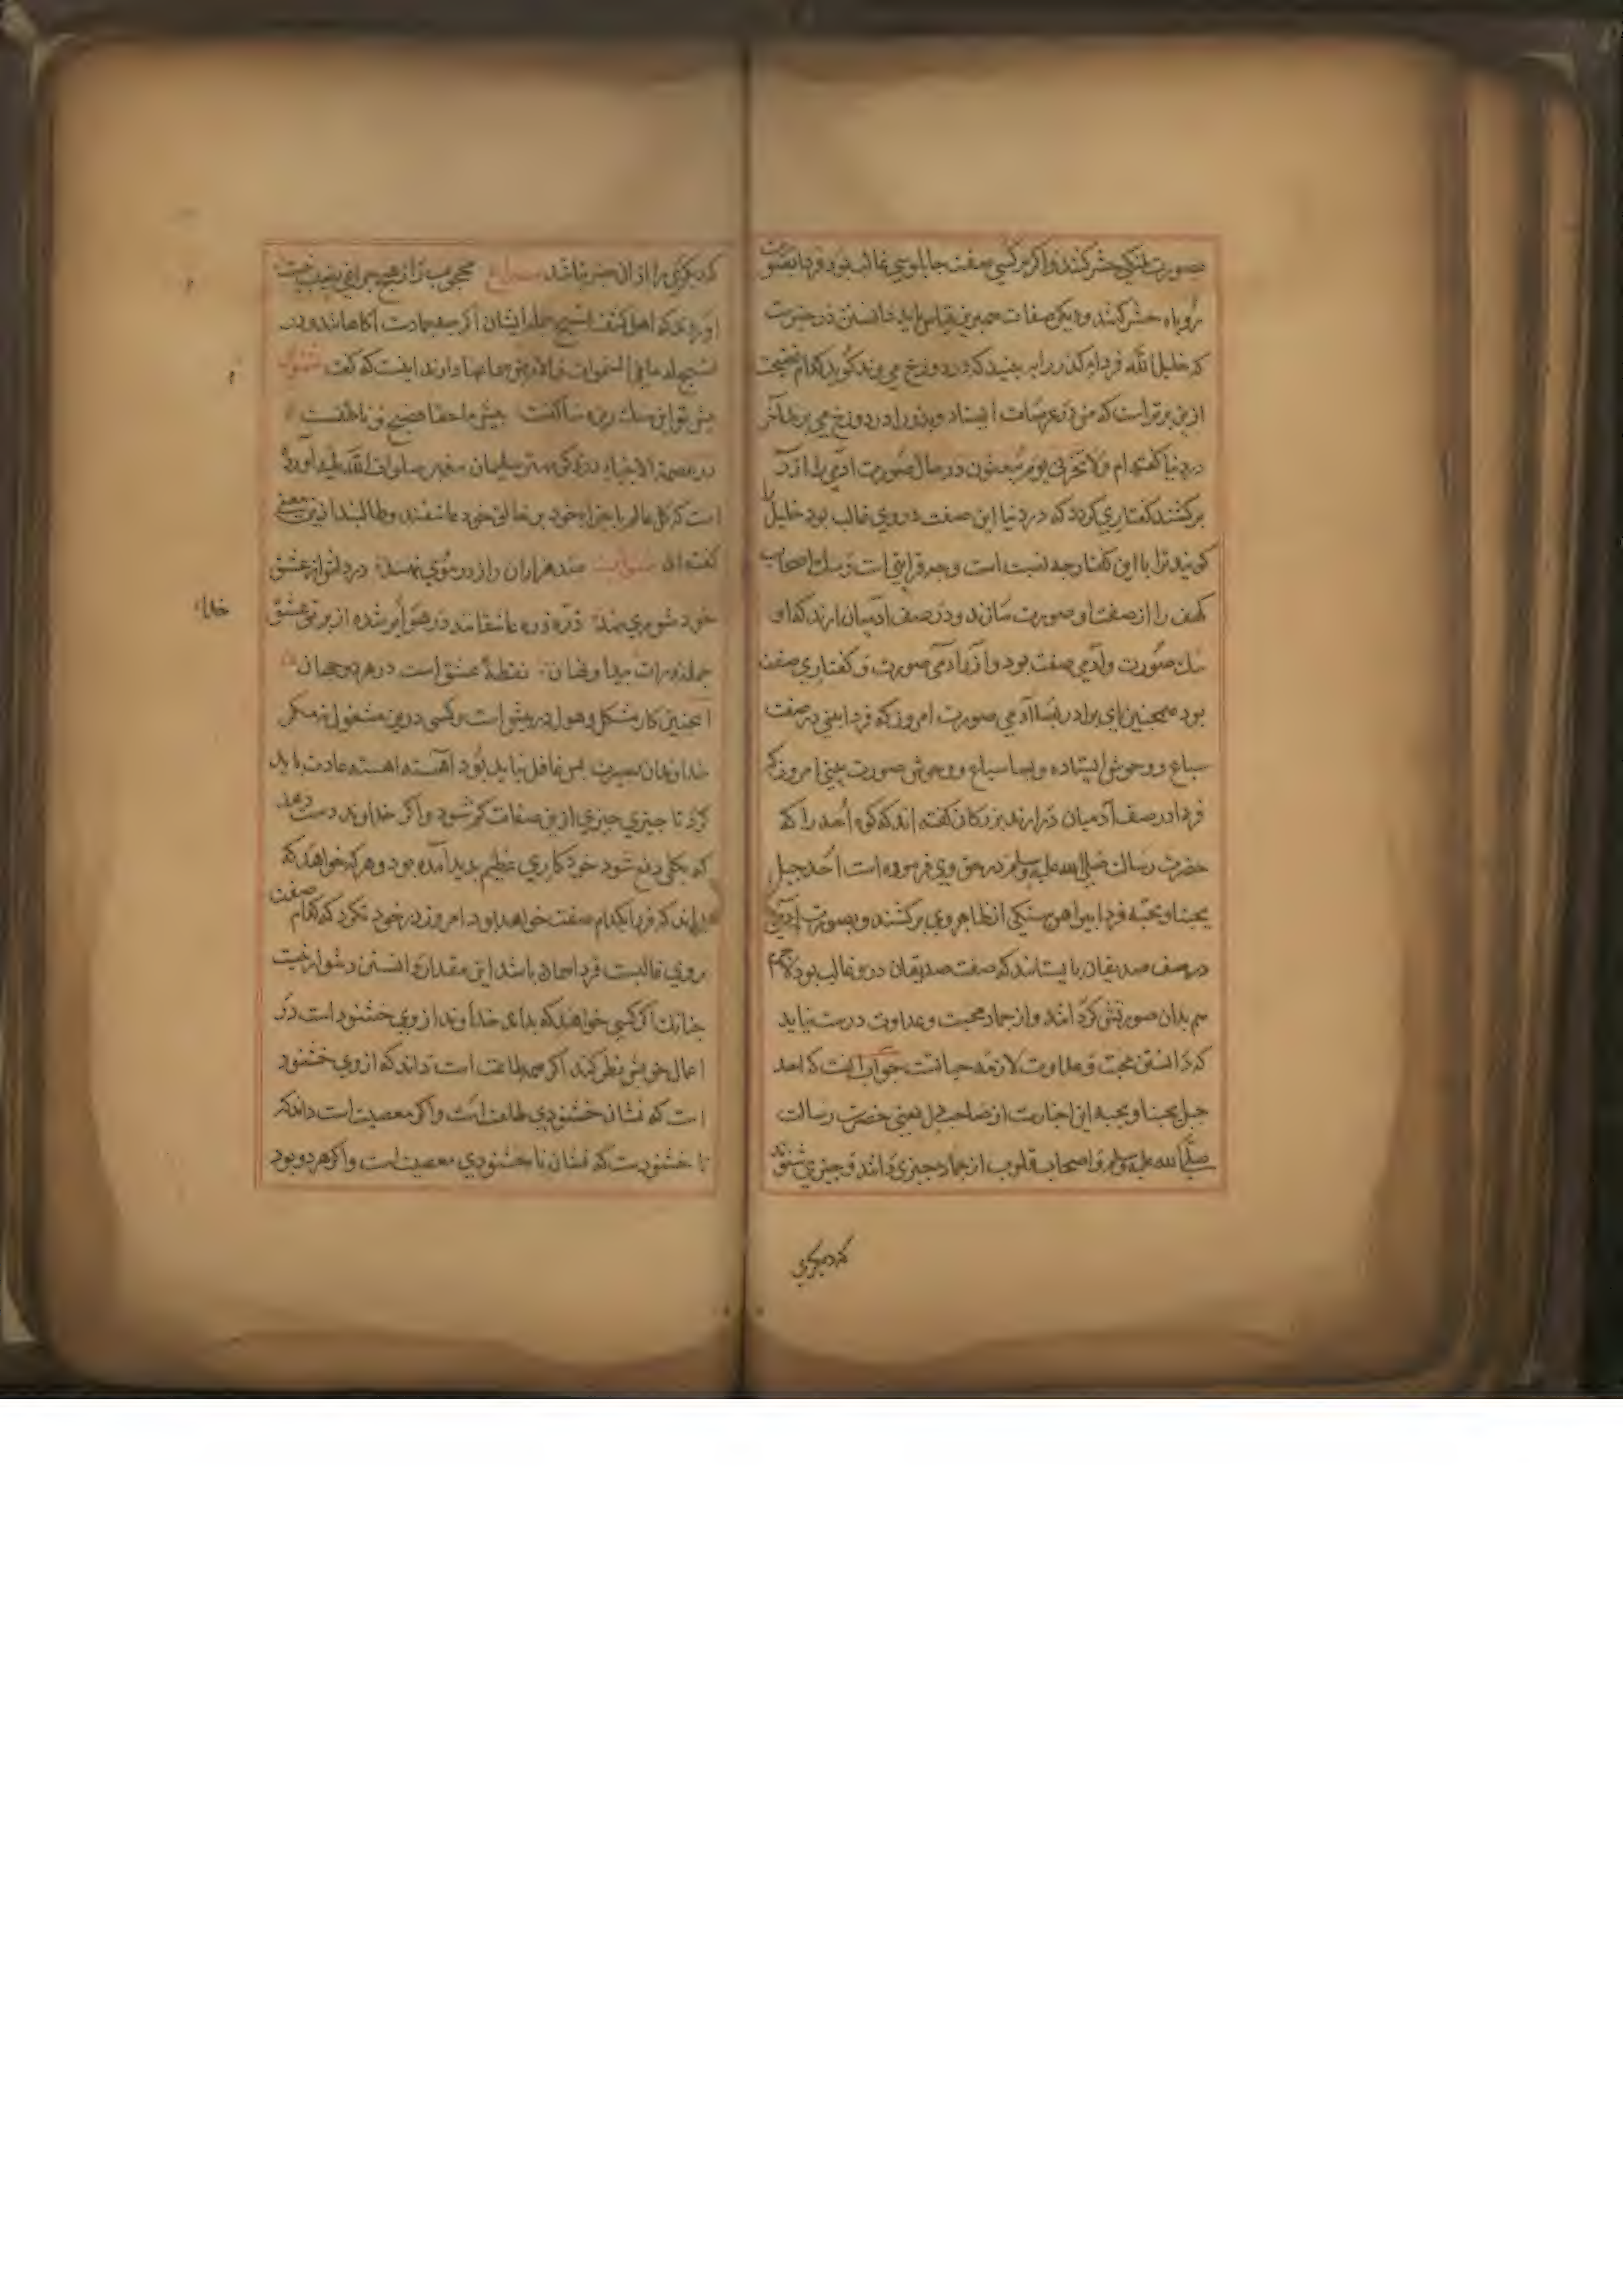 صورت پلنگی حشر کنند و اگر بر کسی صفت جابلوسی غالب بود فردا بصورت
روباه حشر کنند و دیکر صفات همبرین قیاس باید دانستن در خبرست
که خلیل الله فردا پدر را ببیند که در دوزخ می برند کوید کدام فضیحت
ازین برتر است که من در عرصات ایستاده و پدر را در دوزخ می برند آخر
در دنیا گفته ام ولا تخزنی یوم یبعثون در حال صورت آدمی را از و
برکشند کفتاری کردد که در دنیا این صفت در وی غالب بود خلیل را
کویند ترا با این کفتار چه نسبت است و چه قرابتی است و سک اصحاب
کهف را از صفت او صورت سازند و در صف آدمیان ارند که او
سک صورت و آدمی صفت بود و آزر آدمی صورت و کفتاری صفت
بود همچنین ای برادر بسا آدمی صورت امروز که فردا بینی در صف
سباع و وحوش ایستاده و بسا سباع و وحوش صورت بینی امروز که
فردا در صف آدمیان درارند بزرکان گفته اند که کوه احد را که
حضرت رسالت صلی الله علیه وسلم در حق وی فرموده است احد جبل
یحبنا و نحبه فردا پیراهن سنکی از ظاهر وی برکشند و بصورت آدمی
در صف صدیقان بایستانند که صفت صدیقان درو غالب بود لاجرم
هم بدان صورتش کردانند و از جماد محبت و عداوت درست نیاید
که دانستن محبت و عداوت لازمه حیاتست جواب آنست که احد
جبل یحبنا و نحبه این اخبارت از صاحب دل یعنی حضرت رسالت
صلی الله علیه وسلم و اصحاب قلوب از جماد چیزی دانند و چیزی شنوند
که دیکری
که دیکری را از ان خبر نباشد محجوب را از هیچ چیز نصیب نیست
آورده اند که اهل کشف تسبیح جمله ایشان اکر چه جمادات آکاهانند و در
تسبیح له ما فی السموات والارض
پیش تو این سنک ریزه ساکت پیش ما احقا فصیح و ناطقست
در قصة الانبیاء در ذکر مهتر سلیمان پیغمبر صلوات الله علیه آورده
است که کل عالم با اجزاء خود بر خالق خود عاشقند و طالبند ازین معنی
گفته اند مثنوی صد هزاران راز در موی نهند در دلی از عشق
خود شوری نهند ذره ذره عاشقانند در هوا پر شده از پرتو عشق
جمله ذرات پیدا و نهان نقطه عشق است در هر دو جهان
اینچنین کار مشکل و هول در پیش است و کسی درین مشغول نه مکر
خداوندان بصیرت پس غافل نباید بود آهسته اهسته عادت باید
کرد تا چیزی چیزی ازین صفات کم شود و اکر خداوند دست دهد
که بکلی دفع شود خود کاری عظیم پدید آمده بود و هر که خواهد که
بداند که فردا بکدام صفت خواهد بود امروز در خود نکرد که کدام صفت
بر وی غالبست فردا همان باشد این مقدار دانستن دشوار نیست
چنانک اکر کسی خواهد که بداند خداوند از وی خشنود است در
اعمال خویش نظر کند اکر همه طاعت است داند که از وی خشنود
است که نشان خشنودی طاعت است و اکر معصیت است داند که
نا خشنودست که نشان نا خشنودی معصیت است و اکر هر دو بود